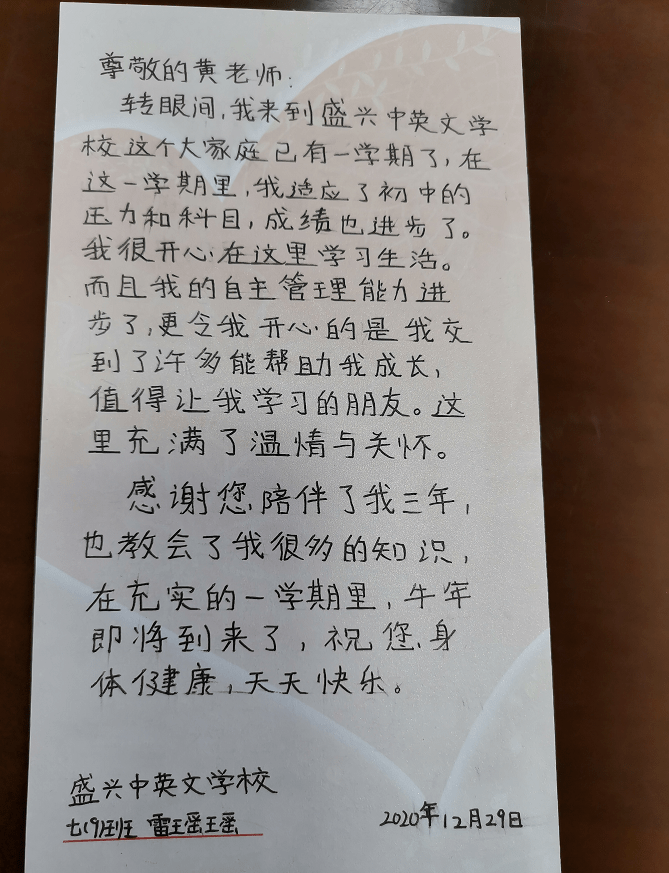 尊敬的黄老师:
转眼间,我来到盛兴中英文学
校这个大家庭已有一学期了,在
这一学期里,我适应了初中的
压力和科目,成绩也进步了。
我很开心在这里学习生活。
而且我的自主管理能力进
步了,更令我开心的是我交
到了许多能帮助我成长,
值得让我学习的朋友。这
里充满了温情与关怀。
感谢您陪伴了我三年,
也教会了我很多的知识,
在充实的一学期里,牛年
即将到来了,祝您身
体健康,天天快乐。
盛兴中英文学校
七(9)班 雷瑶瑶 2020年12月29日